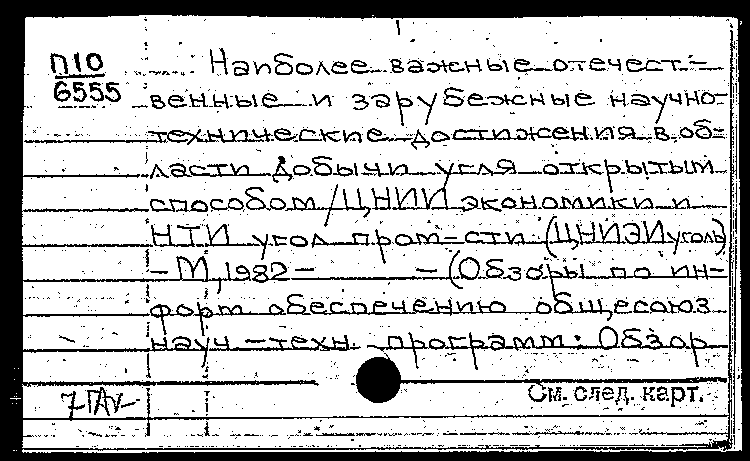 П10
6555
Наиболее важные отечест-
венные и зарубежные научно-
технические достижения в об-
ласти добычи угля открытым
способом/ЦНИИ экономики и
НТИ угол пром-сти (ЦНИЭИуголь)
-М, 1982- - (Обзоры по ин-
форм обеспечению общесоюз
науч-техн. программ: Обзор
См. след. карт.